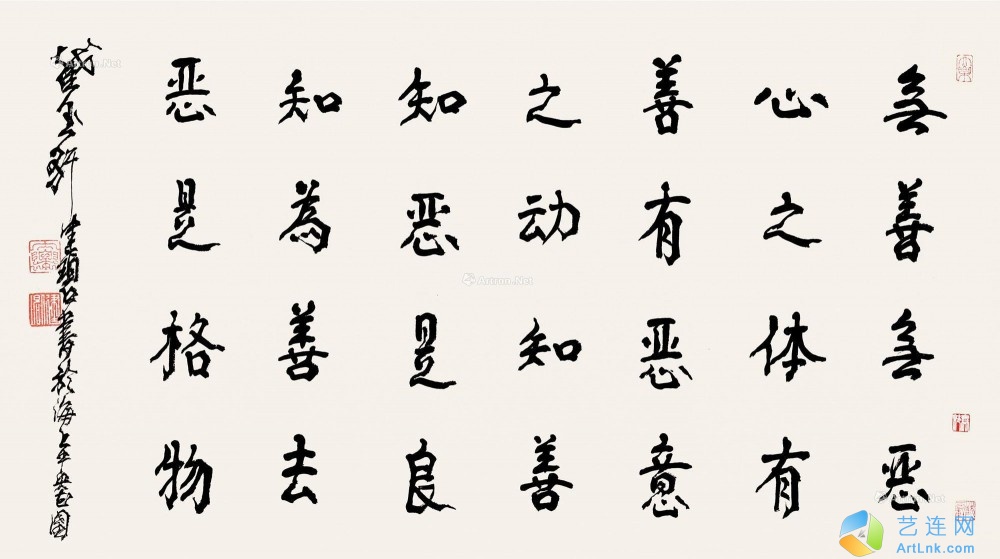 无善无恶
心之体有
善有恶意
之动知善
知恶是良
知为善去
恶是格物
艺连网
ArtLnk.com
Artron.Net
Artron.Net
Artron.Net